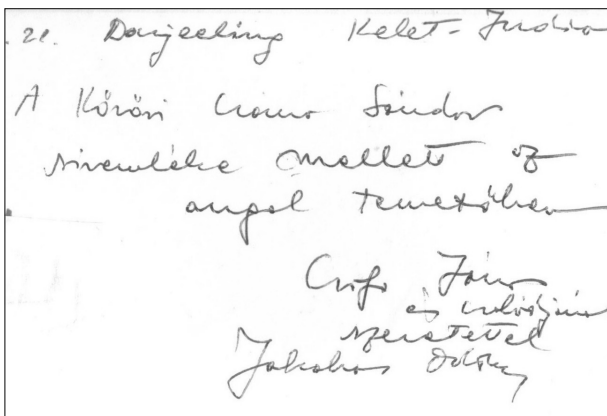 . 21. Darjeeling Kelet-India
A Kőrösi Csoma Sándor
síremléke mellett az
angol temetőben
János
és
szeretettel
Jakabos Ödön